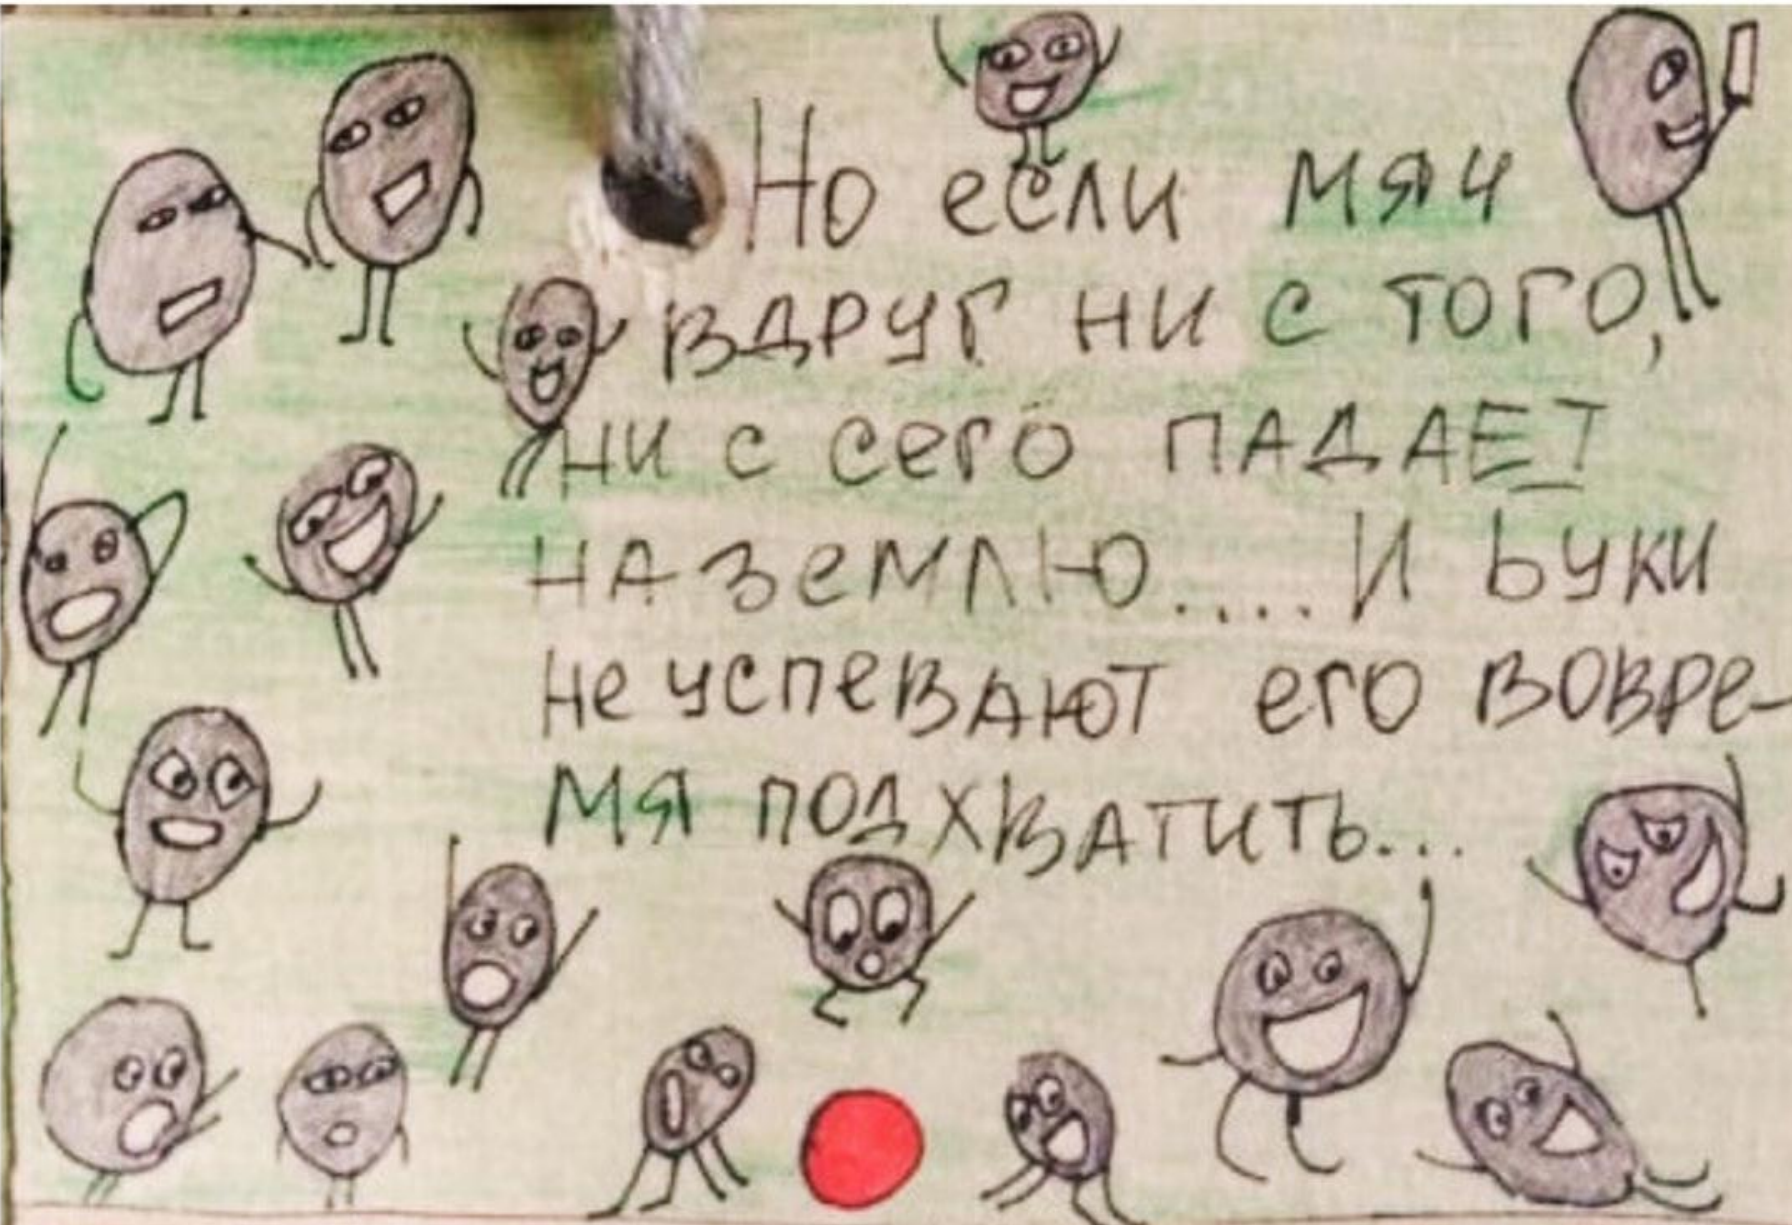 Но если мяч
вдруг ни с того,
ни с сего падает
на землю.... И Буки
не успевают его вовре-
мя подхватить...